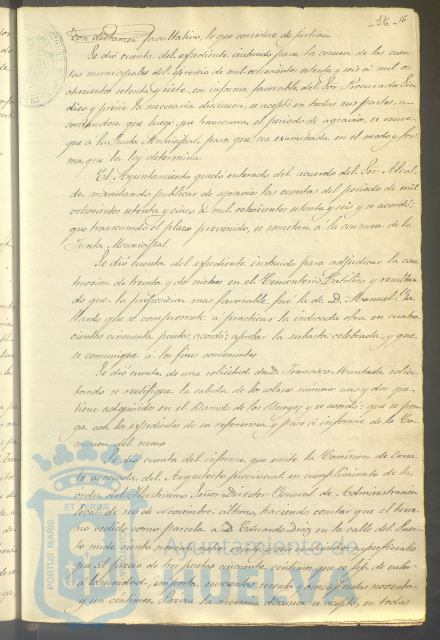 16 - 16
con dictamen facultativo, lo que considere de justicia
Se dió cuenta del expediente instruido para la censura de las cuen
tas municipales del ejercicio de mil ochocientos setenta y seis á mil o
chocientos setenta y siete, con informe favorable del Sor Procurador Sín
dico y prévia la necesaria discusion, se aceptó en todas sus partes, a
cordándose que luego que transcurra el periodo de agravios, se convo
que á la Junta Municipal, para que sea examinada en el modo y for
ma que la ley determina
El Ayuntamiento quedó enterado del acuerdo del Sor Alcal
de mandando publicar de agravios las cuentas del periodo de mil
ochocientos setenta y cinco á mil ochocientos setenta y seis y se acordó:
que transcurrido el plazo prevenido, se sometan á la censura de la
Junta Municipal
Se dió cuenta del expediente instruido para adjudicar la cons
truccion de treinta y dos nichos en el Cementerio Católico y resultan
do que la proposicion mas favorable fué la de D. Manuel
que se compromete á practicar la indicada obra en cuatro
cientas cincuenta pesetas, acordó: aprobar la subasta celebrada, y que
se comunique á los fines convenientes
Se dió cuenta de una solicitud de D. Francisco Muntada solici
tando se rectifique la cabida de los solares número uno y dos que
tiene adquiridos en el y se acordó: que se pon
ga con los expedientes de su referencia y pase á informe de la Co
mision del ramo
Se dió cuenta del informe que emite la Comision de Orna
to asociada del Arquitecto provincial en cumplimiento de la
orden del Ilustrísimo Señor Director General de Administracion
local de seis de Noviembre último, haciendo constar que el terre
no cedido como parcela á D. Eduardo Diaz en la calle del Puer
to mide ciento noventa superficiales
que al precio de tres pesetas cincuenta céntimos que se fija de valor
á la unidad, importa y cinco pesetas noventa
y un céntimos. Prévia la necesaria discusion se aceptó en todas
PORTUS MARIS
ET TERRE
CUSTODIA
Ayuntamiento de
HUELVA